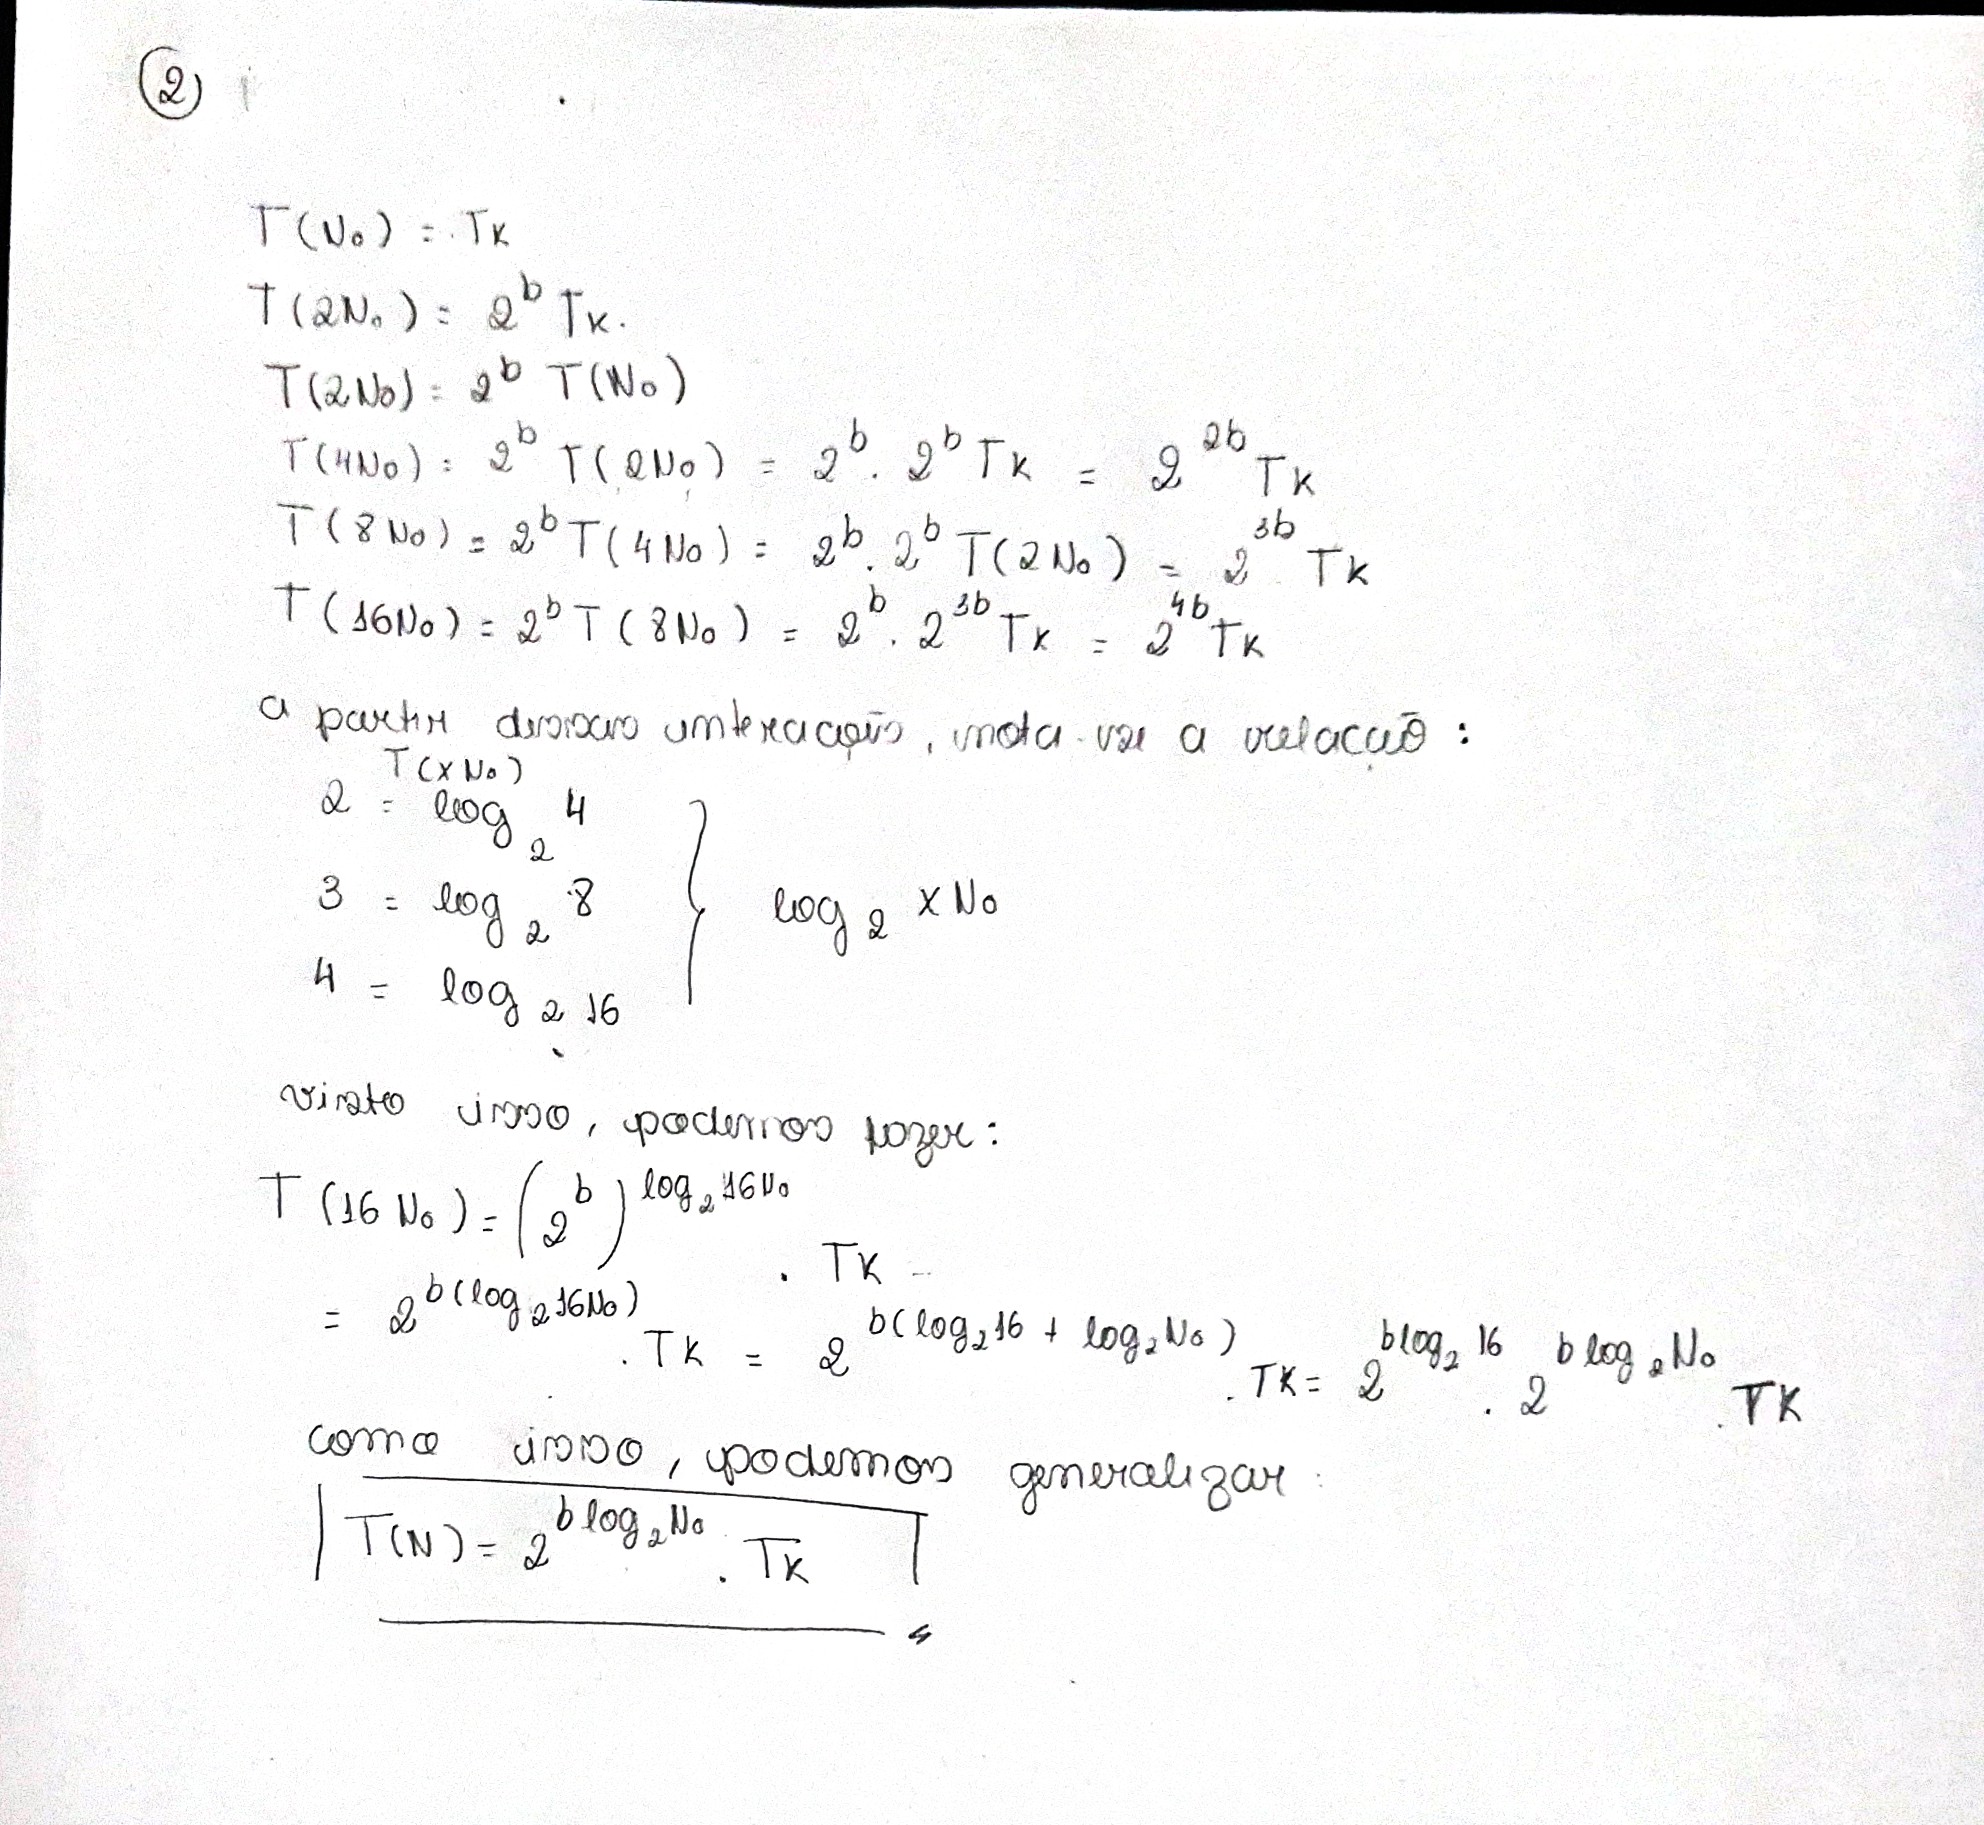 2
T(N₀) = Tk
T(2N₀) = 2^b Tk.
T(2N₀) = 2^b T(N₀)
T(4N₀) = 2^b T(2N₀) = 2^b . 2^b Tk = 2^2b Tk
T(8N₀) = 2^b T(4N₀) = 2^b . 2^b T(2N₀) = 2^3b Tk
T(16N₀) = 2^b T(8N₀) = 2^b . 2^3b Tk = 2^4b Tk
a partir dessas interações, nota-se a relação :
T(xN₀)
2 = log₂ 4
3 = log₂ 8 } log₂ xN₀
4 = log₂ 16
visto isso, podemos fazer:
T(16N₀) = (2^b)^log₂16N₀ . Tk
= 2^b(log₂16N₀) . Tk = 2^b(log₂16 + log₂N₀) . Tk = 2^blog₂16 . 2^blog₂N₀ . Tk
como isso, podemos generalizar:
T(N) = 2^blog₂N₀ . Tk